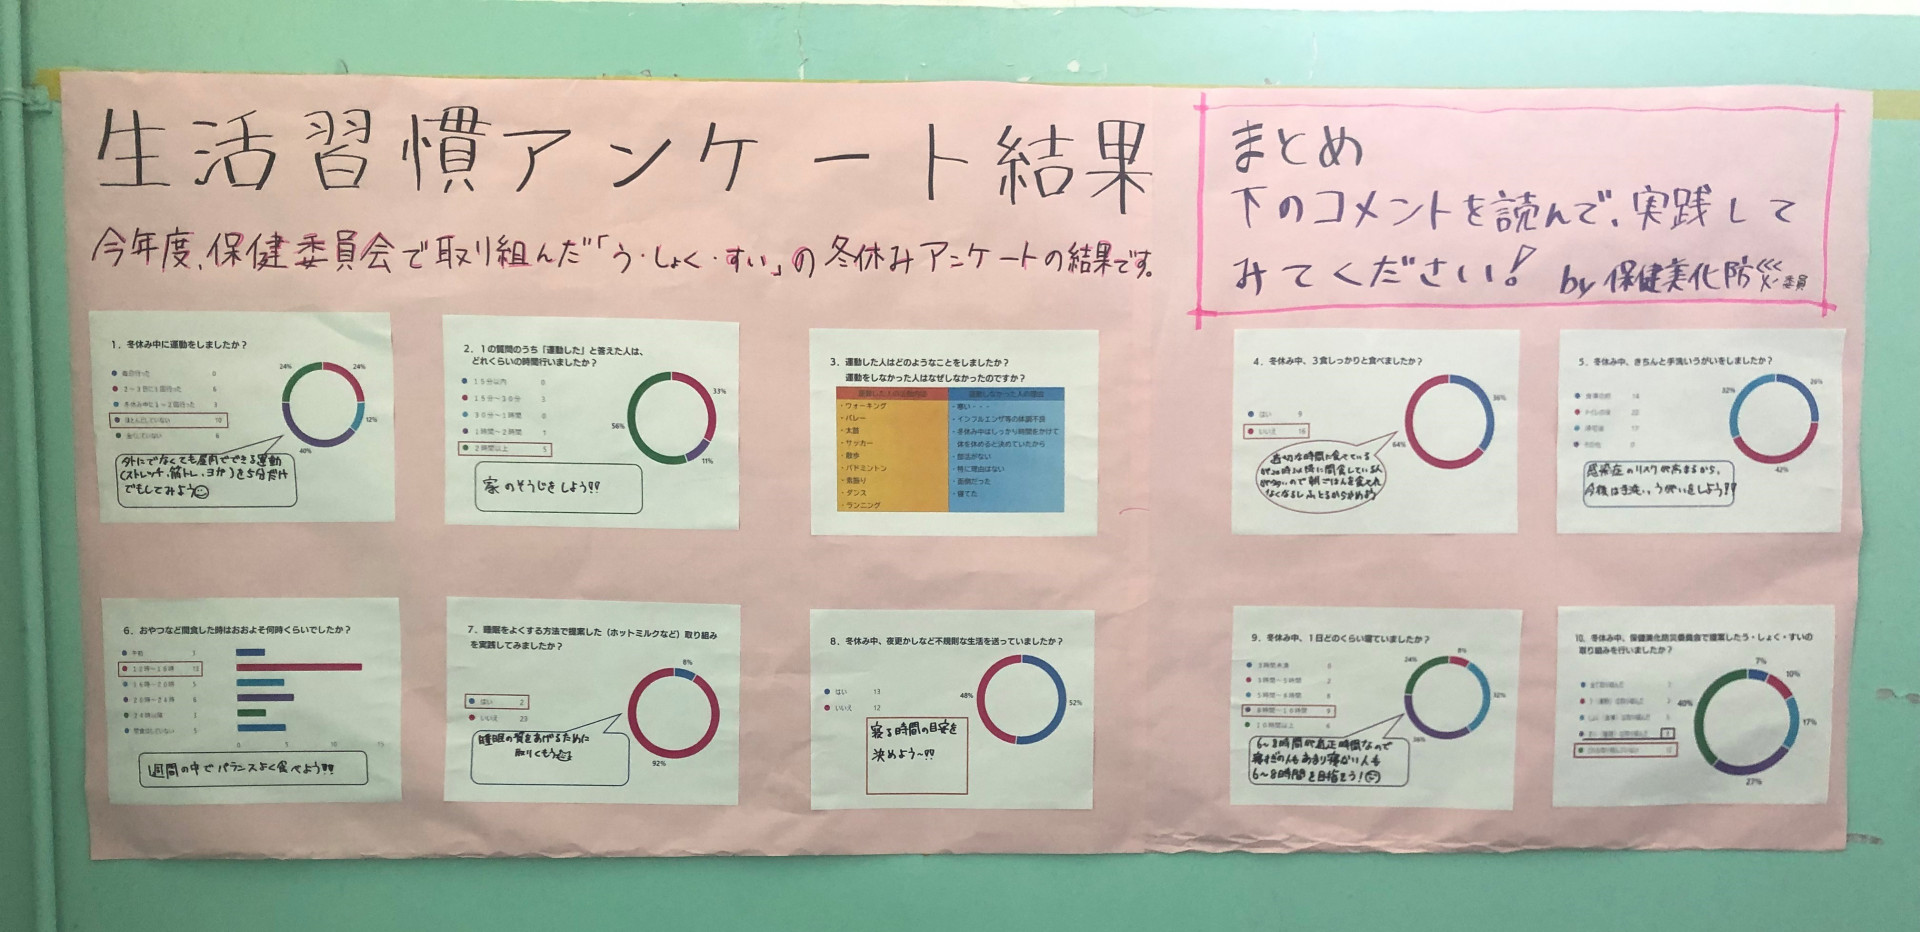 生活習慣アンケート結果
今年度、保健委員会で取り組んだ「う・しょく・すい」の冬休みアンケートの結果です。
まとめ
下のコメントを読んで、実践して
みてください! by 保健美化防災委員
1. 冬休み中に運動をしましたか?
毎日行った 0
2~3日に1回行った 6
冬休み中に1~2回行った 3
ほとんどしていない 10
全くしていない 6
24%
24%
12%
40%
外にでなくても屋内でできる運動
(ストレッチ、筋トレ、ヨガ)を5分だけ
でもしてみよう
2. 1の質問のうち「運動した」と答えた人は、
どれくらいの時間行いましたか?
15分以内 0
15分~30分 3
30分~1時間 0
1時間~2時間 1
2時間以上 5
33%
56%
11%
家のそうじをしよう!!
3. 運動した人はどのようなことをしましたか?
運動をしなかった人はなぜしなかったのですか?
・ウォーキング
・バレー
・太鼓
・サッカー
・散歩
・バドミントン
・素振り
・ダンス
・ランニング
・寒い・・・
・インフルエンザ等の体調不良
・冬休み中はしっかり時間をかけて
体を休めると決めていたから
・部活がない
・特に理由はない
・面倒だった
・寝てた
4. 冬休み中、3食しっかりと食べましたか?
はい 9
いいえ 16
36%
64%
適切な時間に食べている
5. 冬休み中、きちんと手洗いうがいをしましたか?
食事の前 14
トイレの後 23
帰宅後 17
その他 0
26%
32%
42%
感染症のリスクが高まるから、
今後は手洗い、うがいをしよう!!
6. おやつなど間食した時はおおよそ何時くらいでしたか?
午前 3
16時~20時 5
20時~24時 6
24時以降 3
間食はしていない 5
0 5 10 15
1週間の中でバランスよく食べよう!!
7. 睡眠をよくする方法で提案した(ホットミルクなど)取り組み
を実践してみましたか?
はい 2
いいえ 23
8%
92%
睡眠の質をあげるために
取りくもう
8. 冬休み中、夜更かしなど不規則な生活を送っていましたか?
はい 13
いいえ 12
48%
52%
寝る時間の目安を
決めよう~!!
9. 冬休み中、1日どのくらい寝ていましたか?
3時間未満 0
3時間~5時間 2
5時間~8時間 8
8時間~10時間 9
10時間以上 6
8%
24%
32%
36%
6~8時間が適正時間なので
寝すぎの人もあまり寝ない人も
6~8時間を目指そう!
10. 冬休み中、保健美化防災委員会で提案したう・しょく・すいの
取り組みを行いましたか?
7%
10%
40%
17%
27%